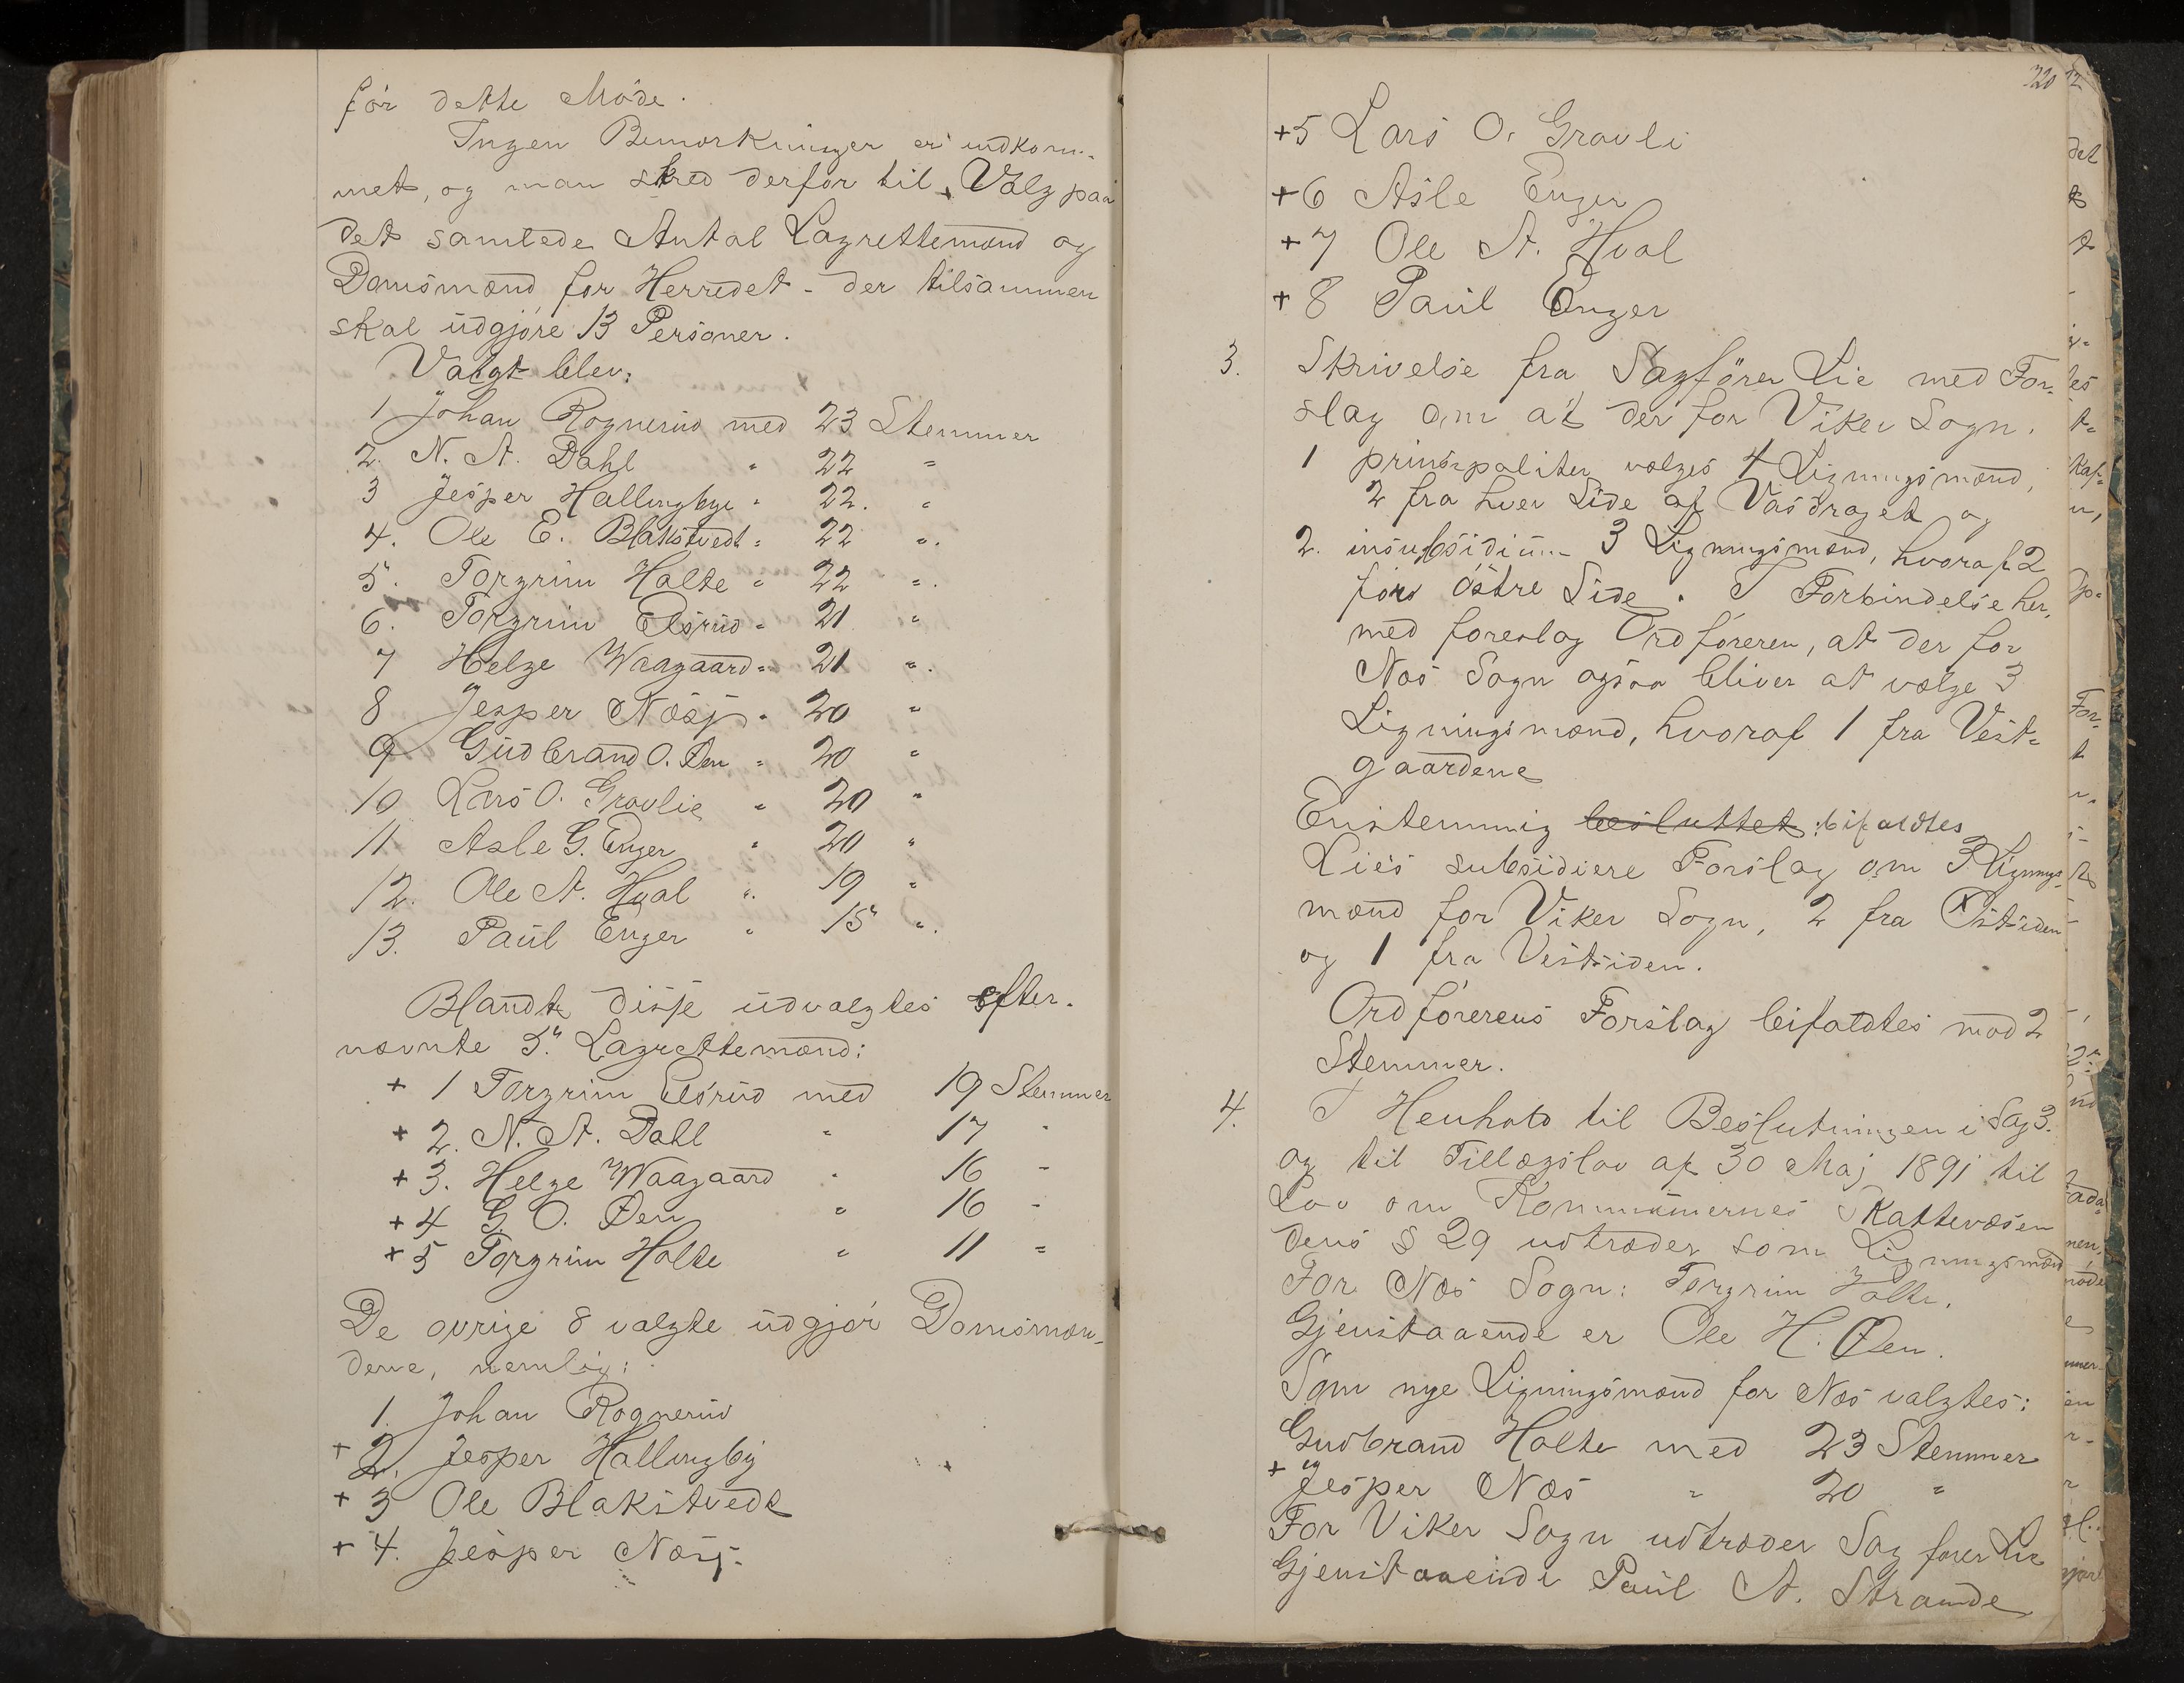 før dette Møde.
Ingen Bemærkninger er indkom-
met, og man skred derfor til Valg paa
det samlede Antal Lagrettemænd og
Domsmænd for Herredet - der tilsammen
skal udgjøre 13 Personer.
Valgt blev:
1 Johan Rognerud med 23 Stemmer
2. N. A. Dahl " 22 "
3 Jesper Hallingbye " 22. "
4. Ole E. Blakstvedt " 22 ".
5. Torgrim Holte " 22 ".
6. Torgrim Elsrud " 21 "
7 Helge Waagaard " 21 ".
8 Jesper Næsj. " 20 "
9 Gudbrand O. Øen " 20 "
10 Lars O. Gravlie " 20 "
11 Asle G. Enger " 20 "
12. Ole A. Hval " 19 "
13. Paul Enger " 15 ".
Blandt disse udvalgtes efter-
nævnte 5 Lagrettemænd:
+ 1 Torgrim Elsrud med 19 Stemmer
+ 2. N. A. Dahl " 17 "
+ 3. Helge Waagaard " 16 "
+ 4 G. O. Øen " 16 "
+ 5 Torgrim Holte " 11 "
De øvrige 8 valgte udgjør Domsmæn-
dene, nemlig:
1. Johan Rognerud
+ 2. Jesper Hallingby
+ 3 Ole Blakstvedt
+ 4. Jesper Næsj.
320
+5 Lars O. Gravli
+6 Asle Enger
+7 Ole A. Hval
+8 Paul Enger
3. Skrivelse fra Sagfører Lie med For-
slag om at der for Viker Sogn.
1 prinsipaliter vælges 4 Ligningsmænd,
2 fra hver Side af Vasdraget og
2. insubsidium 3 Ligningsmænd, hvoraf 2
for østre Side. I Forbindelse her-
med foreslog Ordføreren, at der for
Næs Sogn ogsaa bliver at vælge 3
Ligningsmænd, hvoraf 1 fra Vest-
gaardene
Enstemmig besluttet bifaldtes
Lies subsidiere Forslag om 3 Lignings-
mænd for Viker Sogn, 2 fra Østsiden
og 1 fra Vestsiden.
Ordførerens Forslag bifaldtes mod 2
Stemmer.
4. I Henhold til Beslutningen i Sag 3.
og til Tillægslov af 30 Maj 1891 til
Lov om Kommunernes Skattevæsen
dens § 29 udtræder som Ligningsmænd
For Næs Sogn: Torgrim Holte.
Gjenstaaende er Ole H. Øen.
Som nye Ligningsmænd for Næs valgtes:
Gudbrand Holte med 23 Stemmer
+ Jesper Næs " 20 "
For Viker Sogn udtræder Sagfører Lie
Gjenstaaende Paul A. Strande